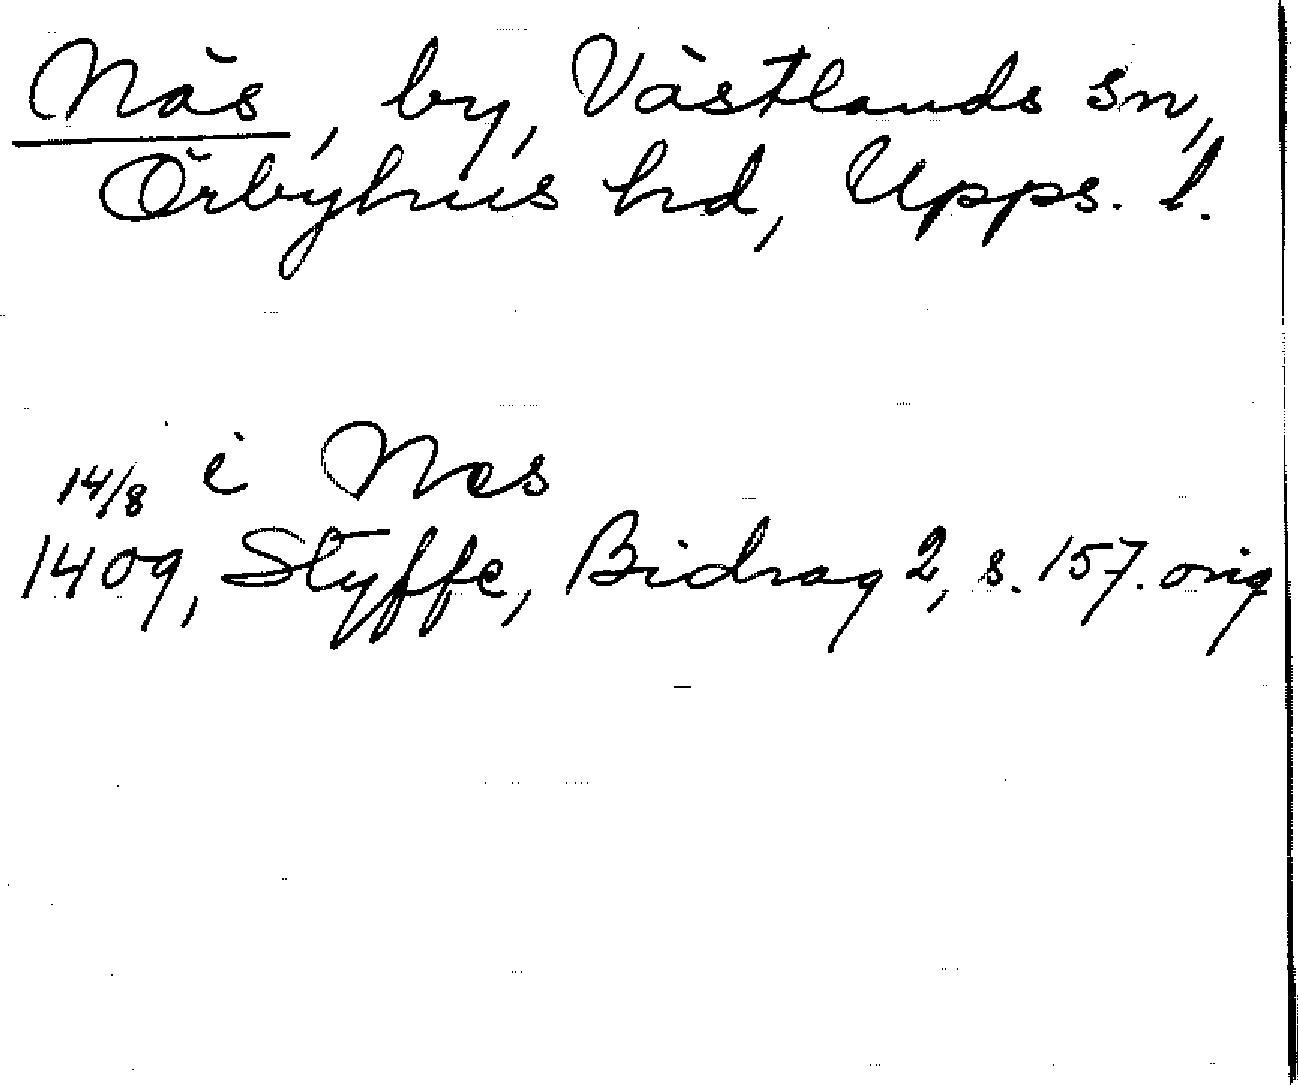 Näs, by, Västlands sn,
Örbyhus hd, Upps. l.
i Næs
14/8
1409, Styffe, Bidrag 2, s. 157. orig